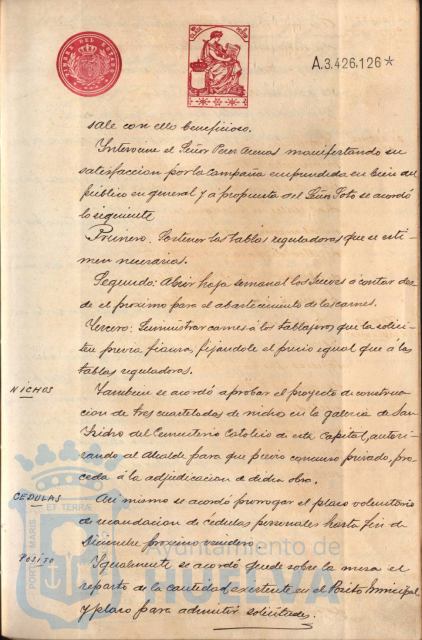 TIMBRE DEL ESTADO
A.3.426.126*
sale con ello beneficioso.
Interviene el Señor Perez Arenas manifestando su
satisfaccion por la campaña emprendida en bien del
público en general y a propuesta del Señor Soto se acordó
lo siguiente
Primero: Sostener las tablas reguladoras que se esti-
men necesarias.
Segundo: Abrir baja semanal los Jueves á contar des-
de el proximo para el abastecimiento de las carnes.
Tercero: Suministrar carnes á los tablajeros que la solici-
ten previa fianza, fijandole el precio igual que á las
tablas reguladoras.
NICHOS
Tambien se acordó aprobar el proyecto de construc-
cion de tres cuarteladas de nichos en la galeria de San
Isidro del Cementerio Catolico de esta Capital, autori-
zando al Alcalde para que previo concurso privado, pro-
ceda á la adjudicacion de dicha obra.
CEDULAS
Asi mismo se acordó prorrogar el plazo voluntario
de recaudacion de cédulas personales hasta fin de
Diciembre proximo venidero.
POSITO
Igualmente se acordó quede sobre la mesa el
reparto de la cantidad existente en el Posito Municipal
y plazo para admitir solicitudes.
PORTUS MARIS ET TERRÆ
Ayuntamiento de